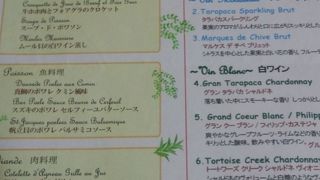 Croquette de Joue de Boeuf et Foie Gras
牛ホホ肉とフォアグラのクロケット
Soupe de Poisson
スープ・ド・ポワソン
Moules Marinière
ムール貝の白ワイン蒸し
Poisson 魚料理
Daurade Poêlée aux Cumin
真鯛のポワレ クミン風味
Bar Poêlé Sauce Beurre de Cerfeuil
スズキのポワレ セルフィーユバターソース
St-Jacques poêlées Sauce Balsamique
帆立貝のポワレ バルサミコソース
Viande 肉料理
Côtelette d'Agneau Grillé au Jus
2.Tarapaca Sparkling Brut
タラパカスパークリング
3.Marques de Chive Brut
マルケス デ チベ ブリュット
~Vin Blanc~ 白ワイン
4. Gran Tarapaca Chardonnay
グラン タラパカ シャルドネ
5. Grand Coeur Blanc / Philipp
グラン クー ブラン / フィリップ・
6.Tortoise Creek Chardonnay